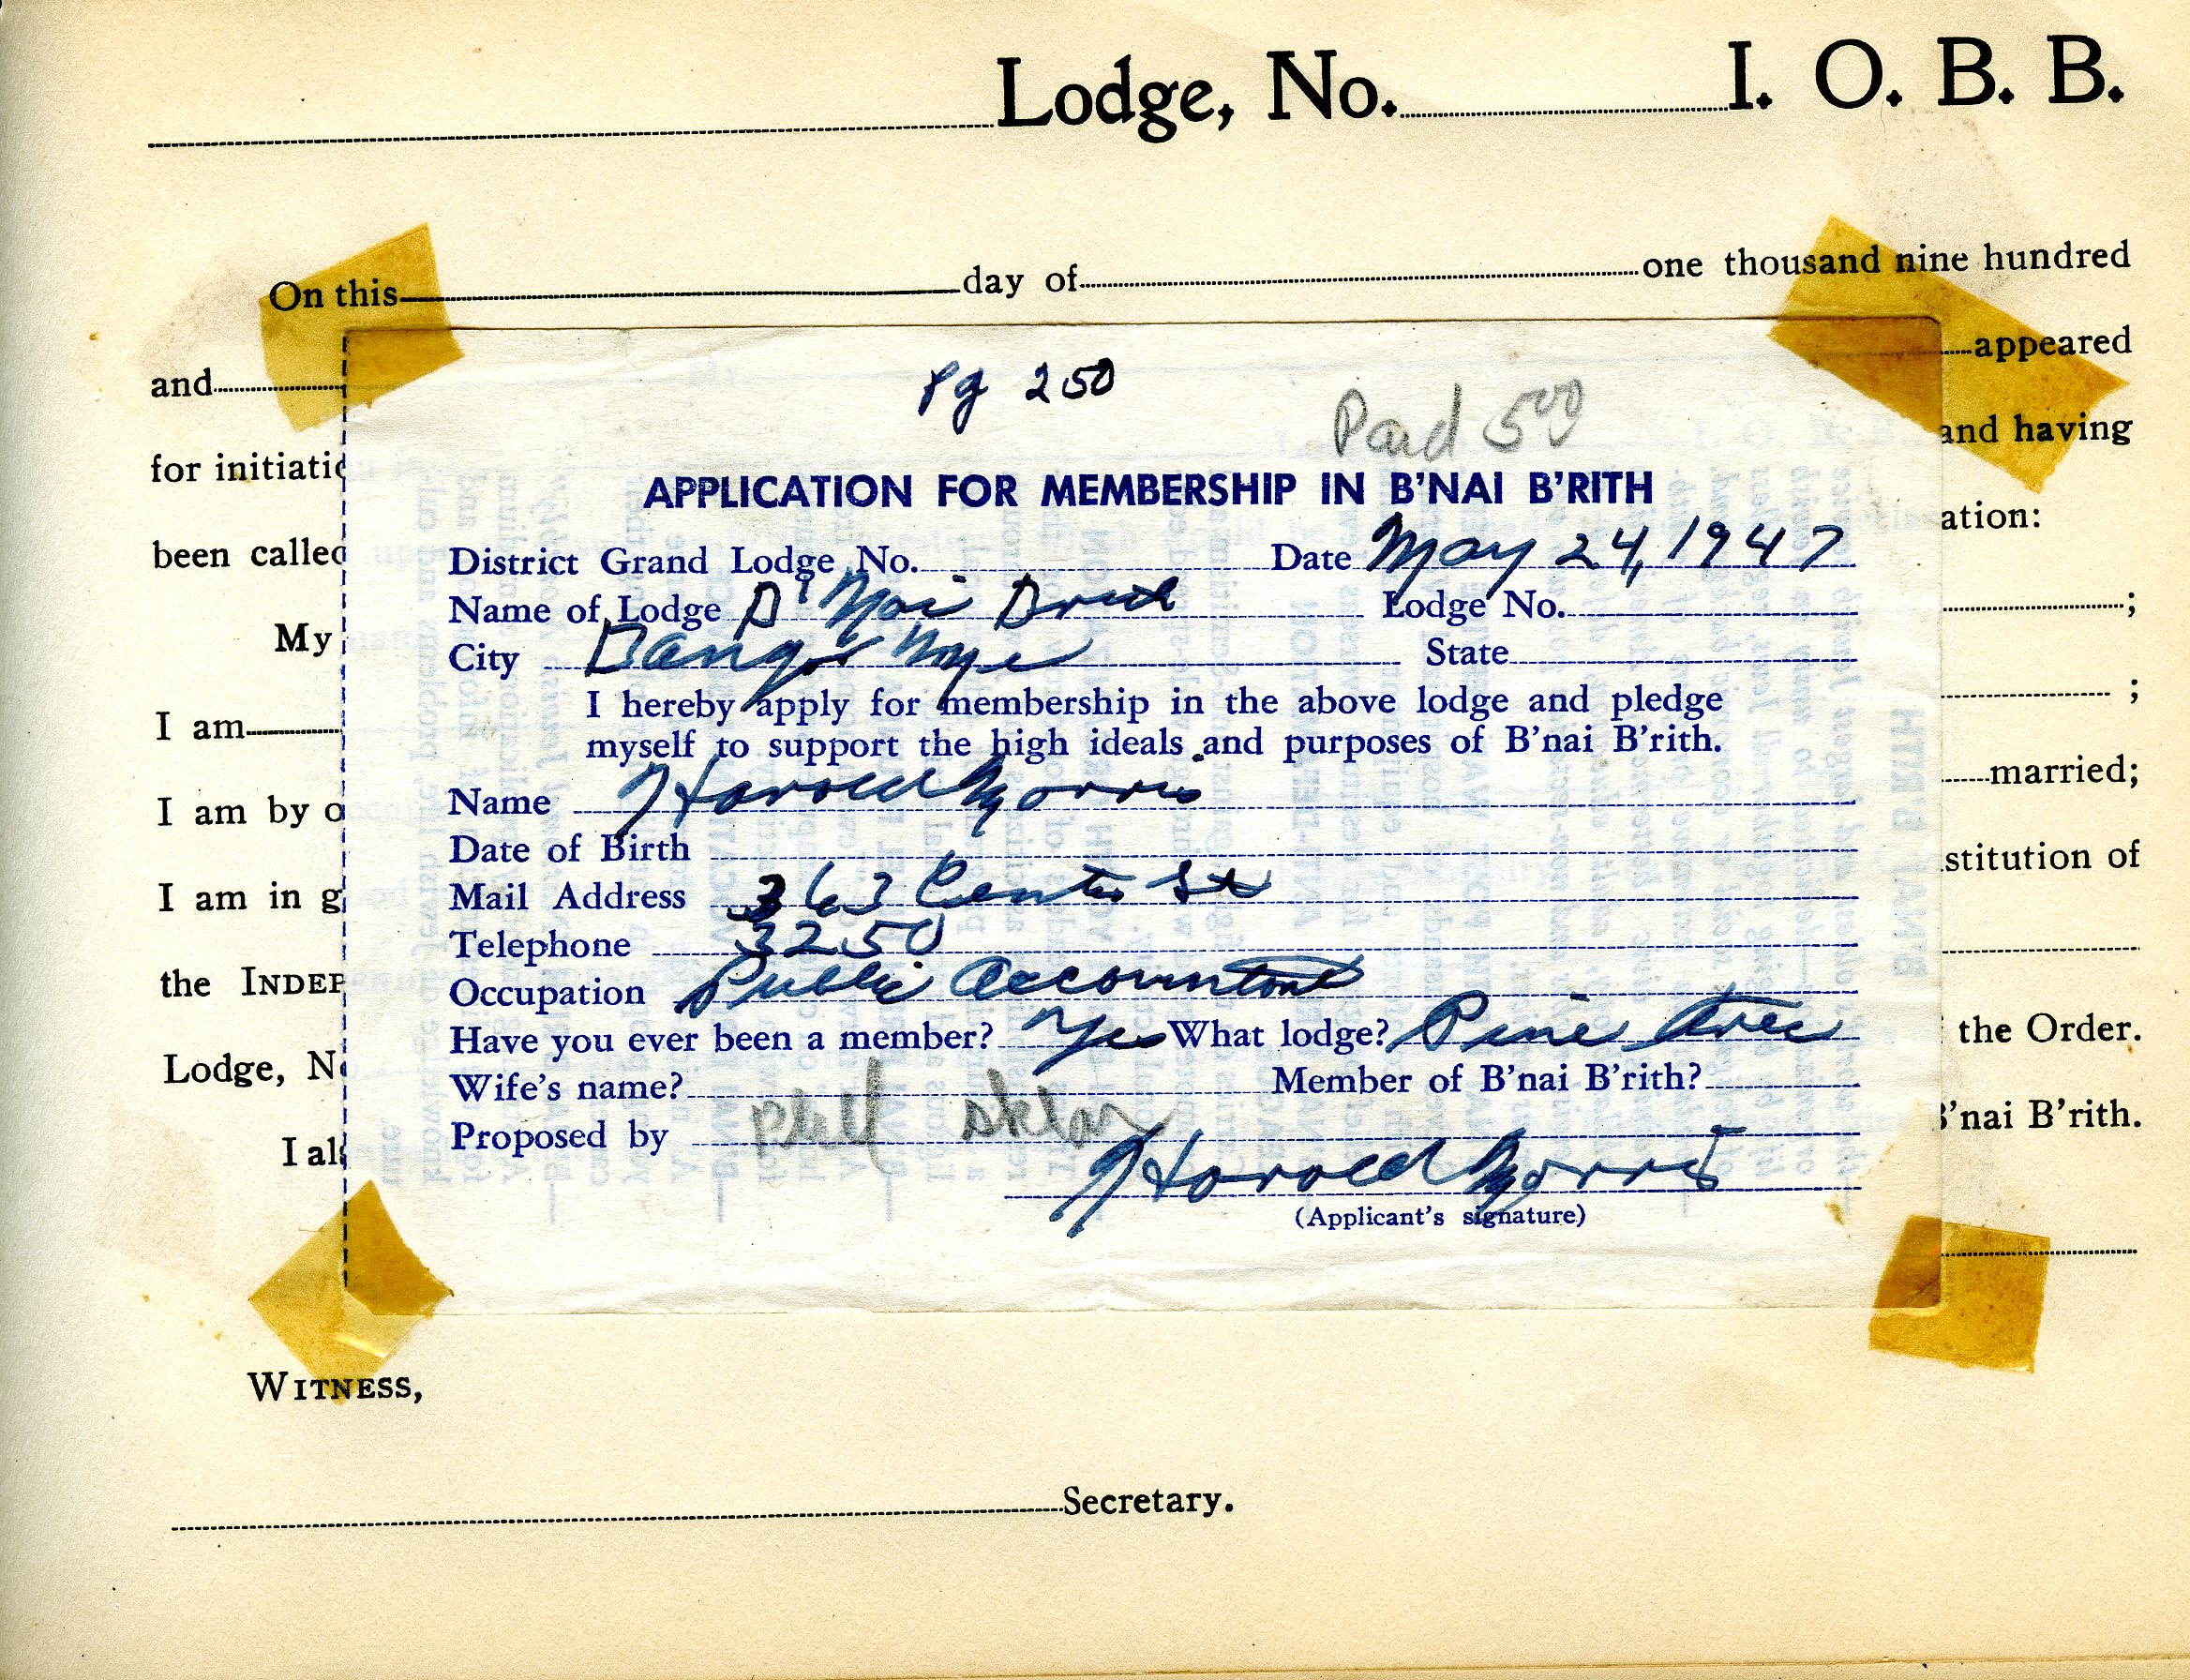 Lodge, No. I. O. B. B.
On this day of one thousand nine hundred
and appeared
pg 250
Paid 5 00
for initiatic and having
APPLICATION FOR MEMBERSHIP IN B'NAI B'RITH
been called ation:
District Grand Lodge No. Date May 24, 1947
Name of Lodge B'Nai Brith Lodge No. ;
My
City Bangor Me State
I hereby apply for membership in the above lodge and pledge ;
I am
myself to support the high ideals and purposes of B'nai B'rith.
married;
Name Harold Morris
I am by o
Date of Birth stitution of
Mail Address 363 Center St
I am in g
Telephone 3250
the INDEP
Occupation Public Accountant
Have you ever been a member? Yes What lodge? Pine Tree the Order.
Lodge, N
Wife's name? Member of B'nai B'rith?
Proposed by Phil Sklar B'nai B'rith.
I al
Harold Morris
(Applicant's signature)
WITNESS,
Secretary.